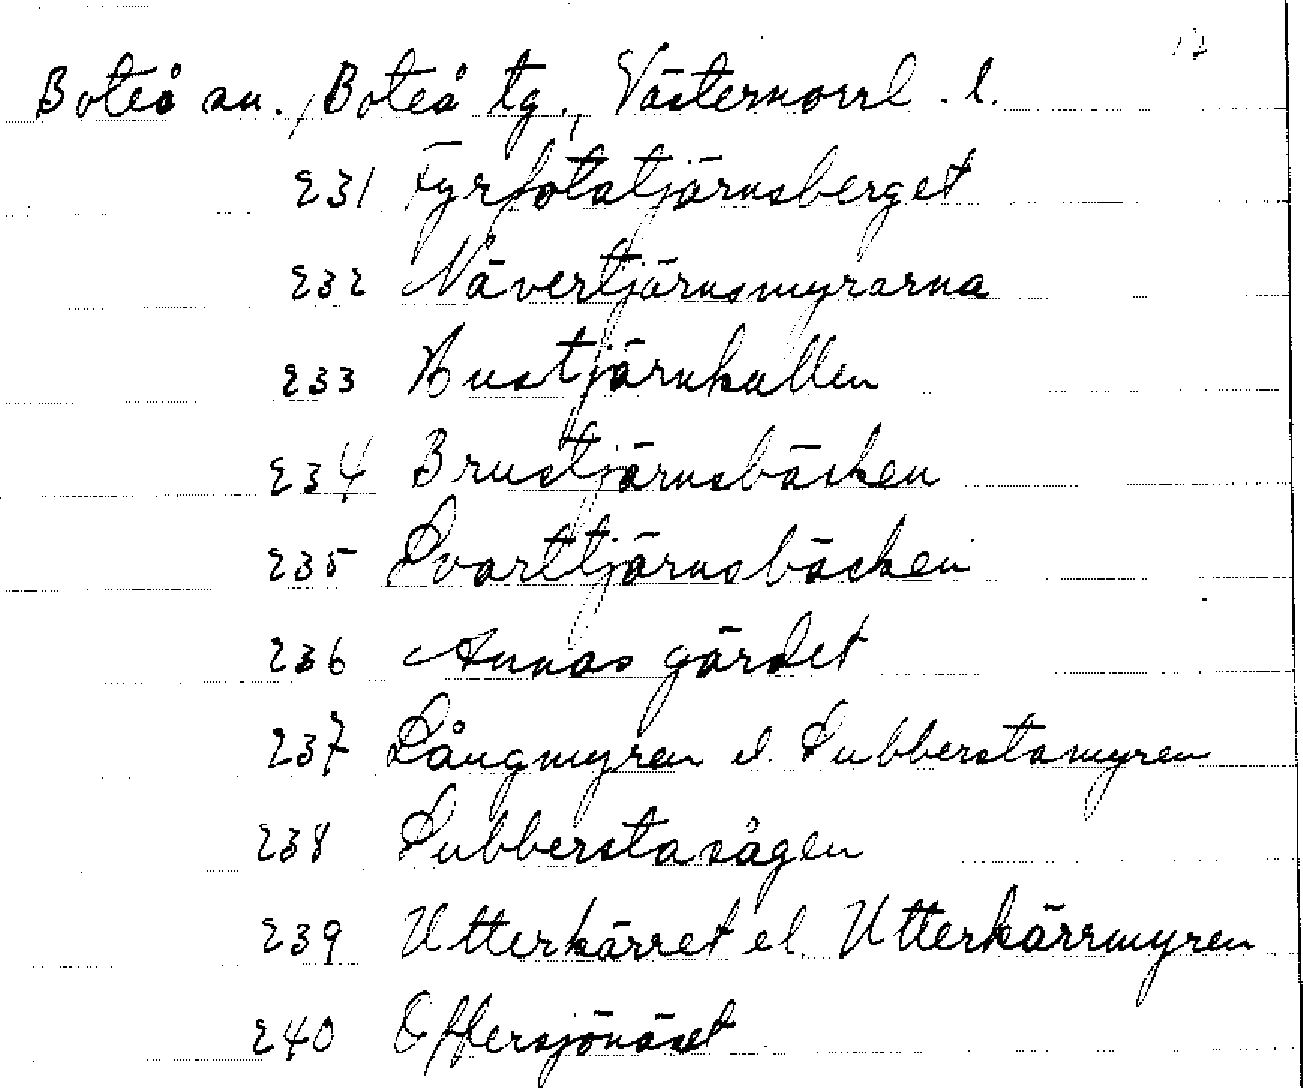 17
Boteå sn., Boteå tg., Västernorrl. l.
231 Fyrfotatjärnsberget
232 Nävertjärnsmyrarna
233 Hustjärnkullen
234 Brustjärnsbäcken
235 Svarttjärnsbäcken
236 Annas gärdet
237 Långmyren el. Subberstamyren
238 Subberstasågen
239 Utterkärret el. Utterkärrmyren
240 Offersjönäset